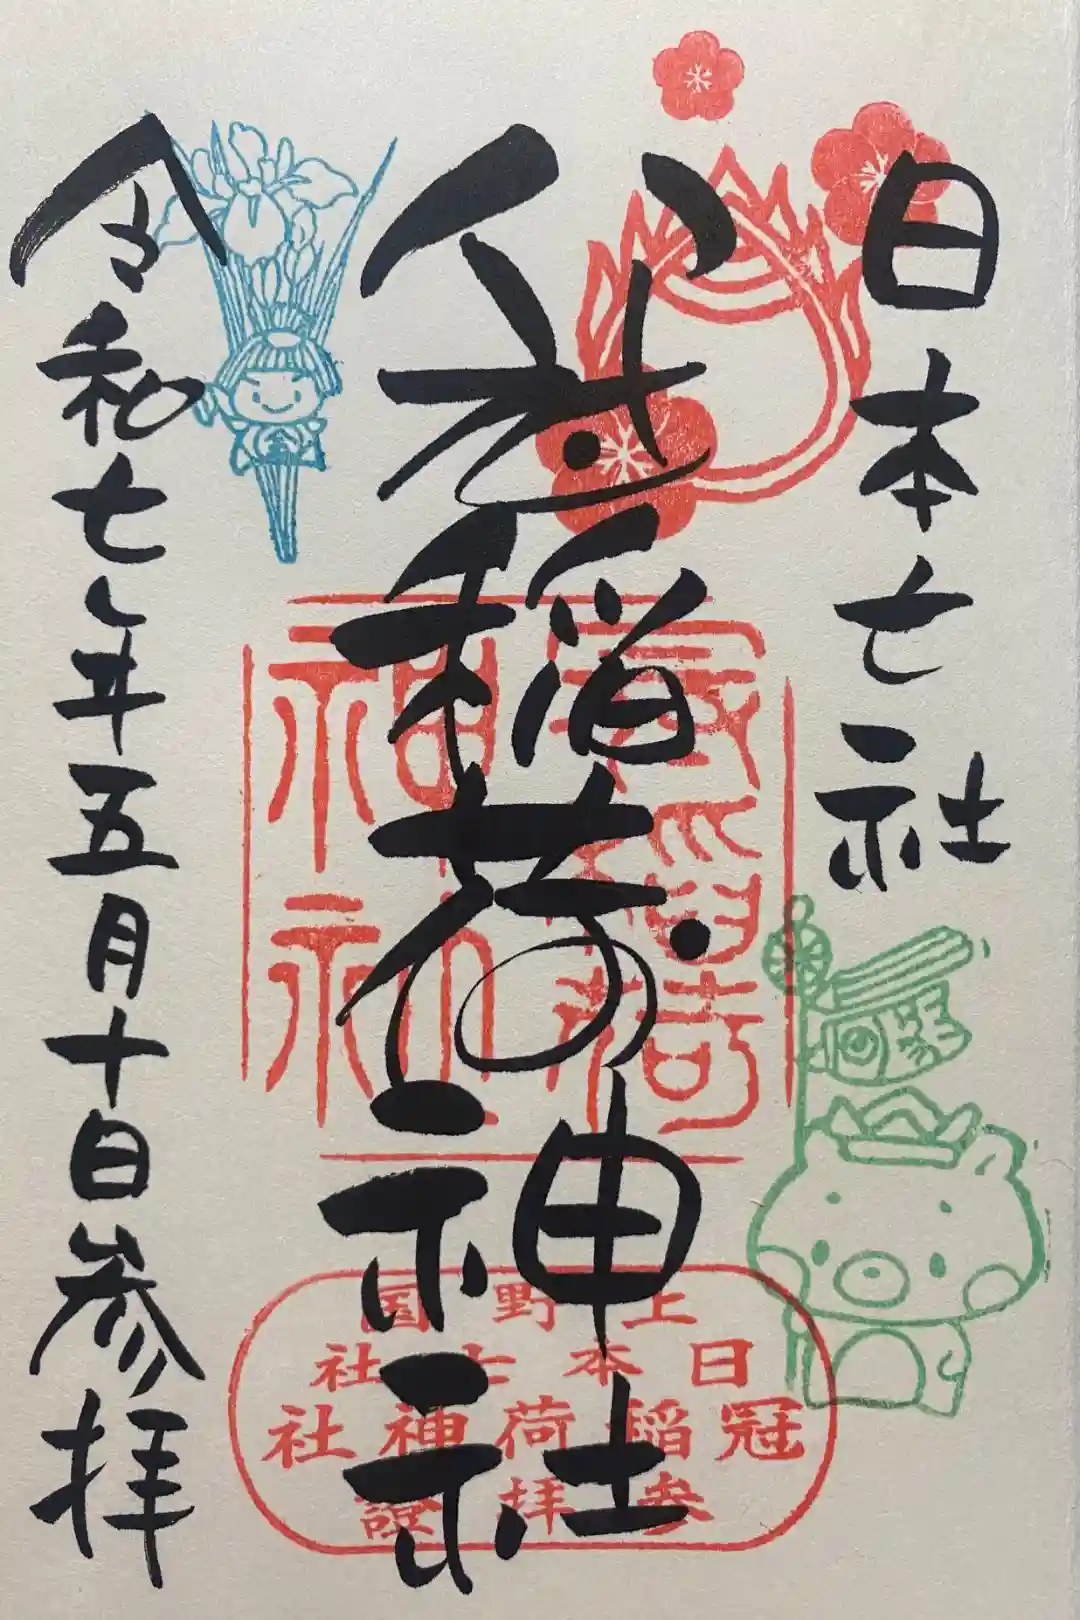 日本七社
冠稲荷神社
令和七年五月十日参拝
冠稲荷
神社
上野國
日本七社
冠稲荷神社
参拝證